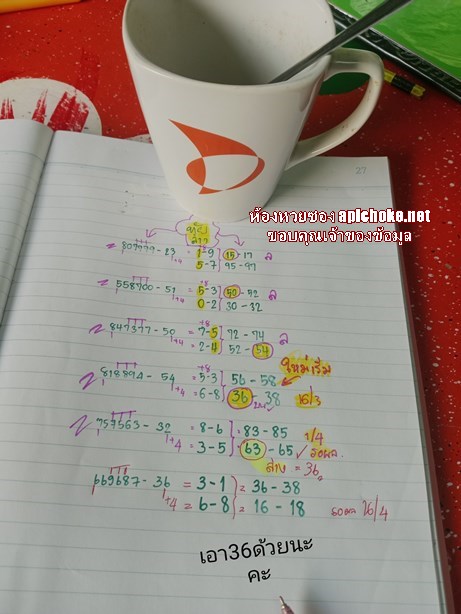 27
ห้องหวยซอง apichoke.net
ขอบคุณเจ้าของข้อมูล
807979 - 23 = 1-9 15-17 ล
+4 5-7 95-97
558700 - 51 = 5-3 50-52 ล
+4 0-2 30-32
847377 - 50 = 7-5 72-74 ล
+4 = 2-4 52-54
ใหม่เริ่ม
818894 - 54 = 5-3 56-58
+4 = 6-8 36-38 16/3
757563 - 32 = 8-6 = 83-85 1/4
+4 = 3-5 = 63-65
ล่าง = 36
669687 - 36 = 3-1 = 36-38
+4 = 6-8 = 16-18 รอผล 16/4
เอา36ด้วยนะ
คะ